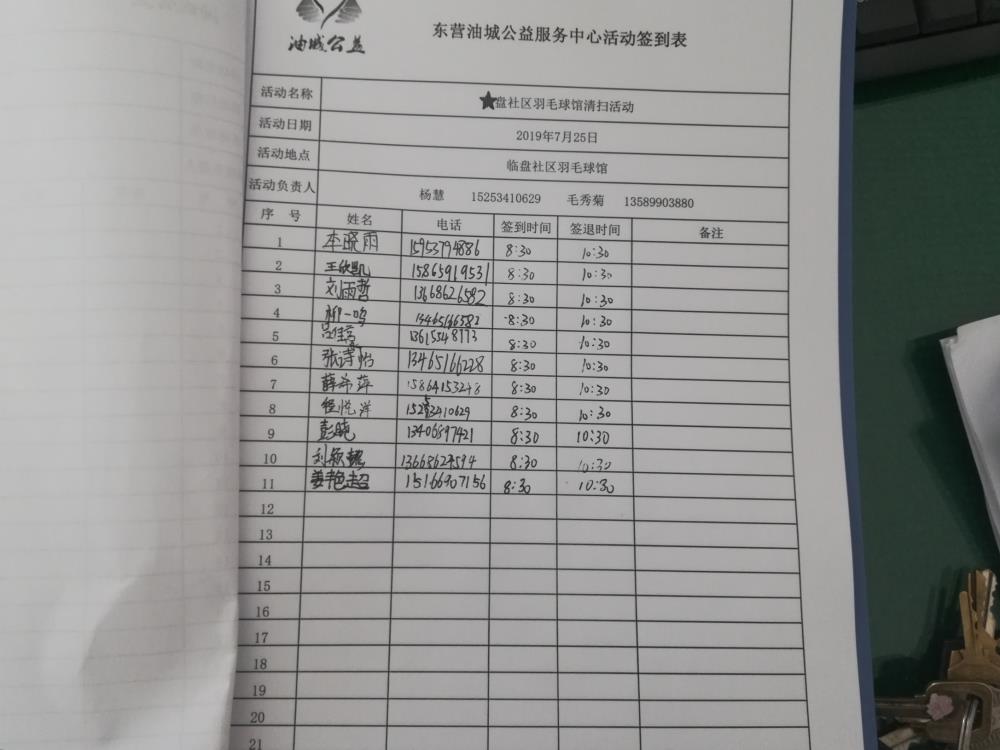 油城公益
东营油城公益服务中心活动签到表
活动名称 ★盘社区羽毛球馆清扫活动
活动日期 2019年7月25日
活动地点 临盘社区羽毛球馆
活动负责人 杨慧 15253410629 毛秀菊 13589903880
序 号 姓名 电话 签到时间 签退时间 备注
1 李晓雨 15953794886 8:30 10:30
2 王欣凯 15865919531 8:30 10:30
3 刘雨哲 13668626582 8:30 10:30
4 柳一鸣 13465166582 8:30 10:30
5 13615548773 8:30 10:30
6 张诗怡 13465166228 8:30 10:30
7 薛希萍 15864153248 8:30 10:30
8 程悦洋 15253410629 8:30 10:30
9 彭晓 13406897421 8:30 10:30
10 刘颖超 13668624594 8:30 10:30
11 姜艳超 15166907156 8:30 10:30
12
13
14
15
16
17
18
19
20
21